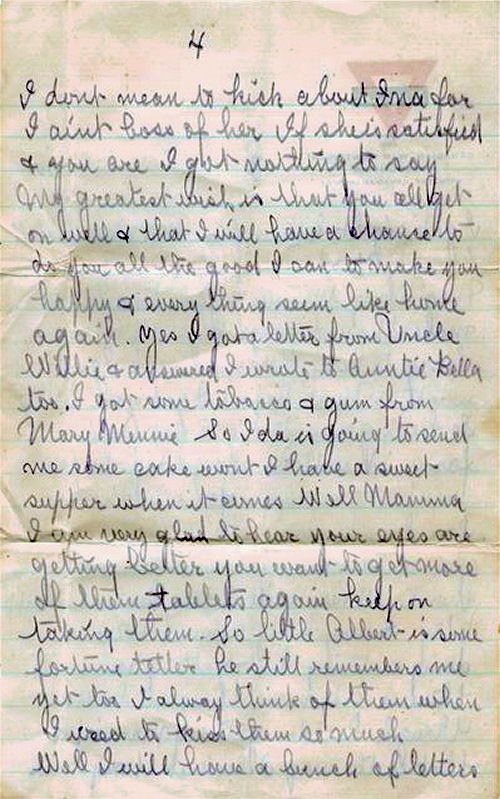 4
I dont mean to kick about Ina for
I aint boss of her If she is satisfied
& you are I got nothing to say
My greatest wish is that you all get
on well & that I will have a chanse to
do you all the good I can to make you
happy & every thing seem like home
again. Yes I got a letter from Uncle
Willie & answered I wrote to Auntie Bella
too. I got some tobacco & gum from
Mary Minnie So Ida is going to send
me some cake wont I have a sweet
supper when it comes Well Mamma
I am very glad to hear your eyes are
getting better you want to get more
of them tablets again keep on
taking them. So little Albert is some
fortune teller he still remembers me
yet too I alway think of them when
I used to kiss them so much
Well I will have a bunch of letters